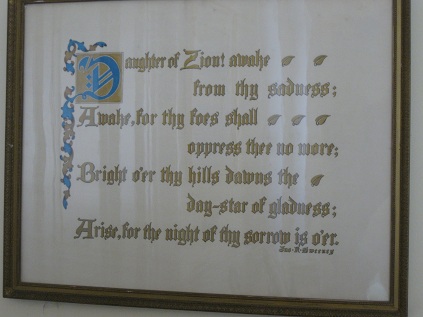 Daughter of Zion! awake
from thy sadness;
Awake, for thy foes shall
oppress thee no more;
Bright o'er thy hills dawns the
day-star of gladness;
Arise, for the night of thy sorrow is o'er.
Sweeney